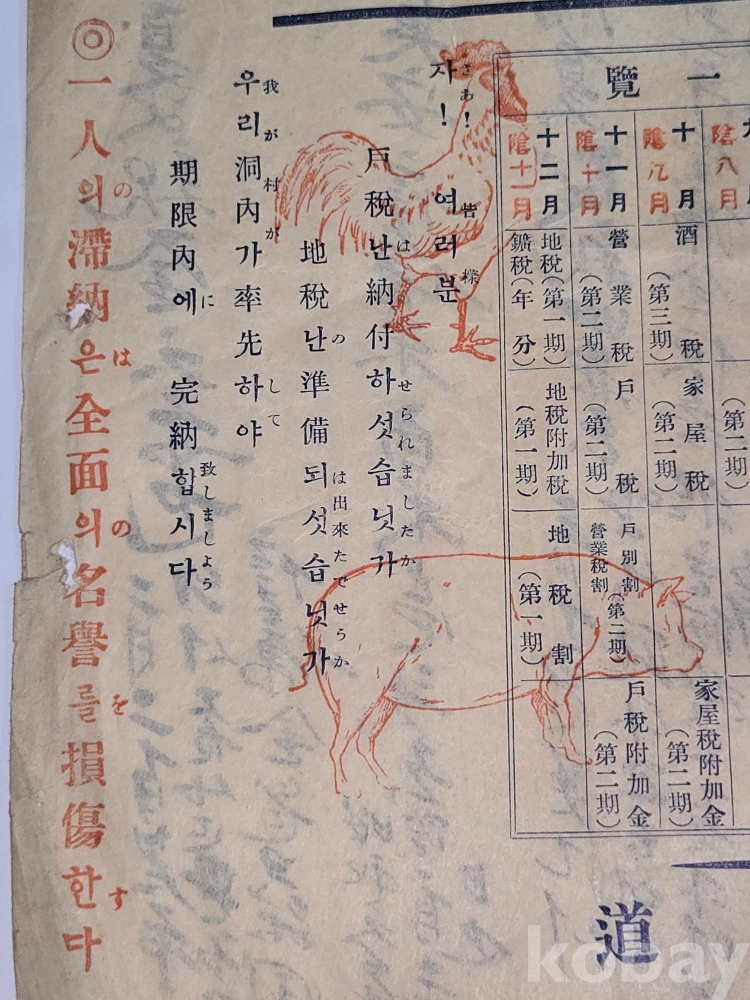 一覽
十月
陰八月
酒稅
(第三期)
家屋稅
(第二期)
家屋稅附加金
(第二期)
十一月
陰十月
營業稅
(第二期)
戶稅
(第二期)
戶別割
營業稅割
(第二期)
戶稅附加金
(第二期)
十二月
陰十一月
地稅(第一期)
鑛稅(年分)
地稅附加稅
(第一期)
地稅割
(第一期)
자! 여러분
さあ! 皆樣
戶稅난納付하섯습닛가
はせられましたか
地稅난準備되섯습닛가
のは出來たでせうか
우리洞內가率先하야
我が村がして
期限內에 完納합시다
に致しましよう
◎一人의滯納은全面의名譽를損傷한다
のはのをす
道
kobay